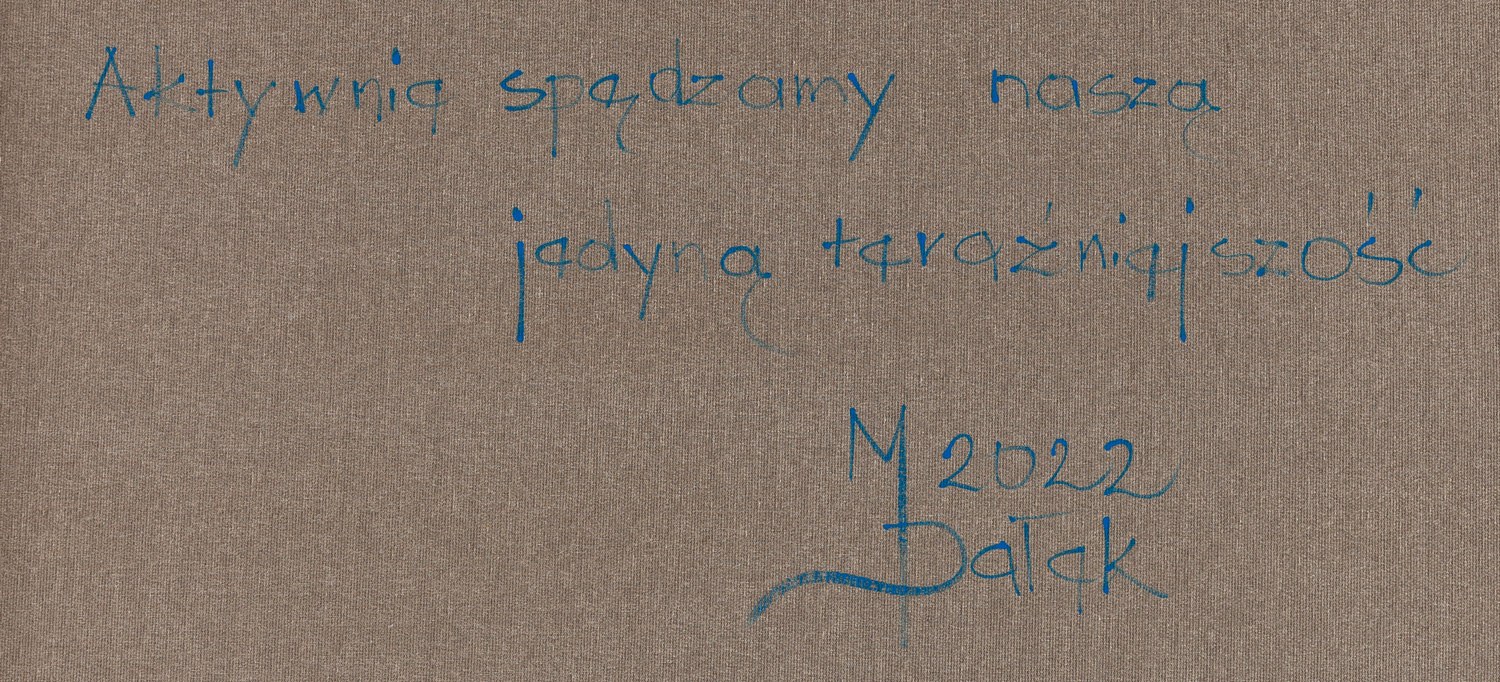 Aktywnie spędzamy naszą
jedyną teraźniejszość
M 2022
Dałek